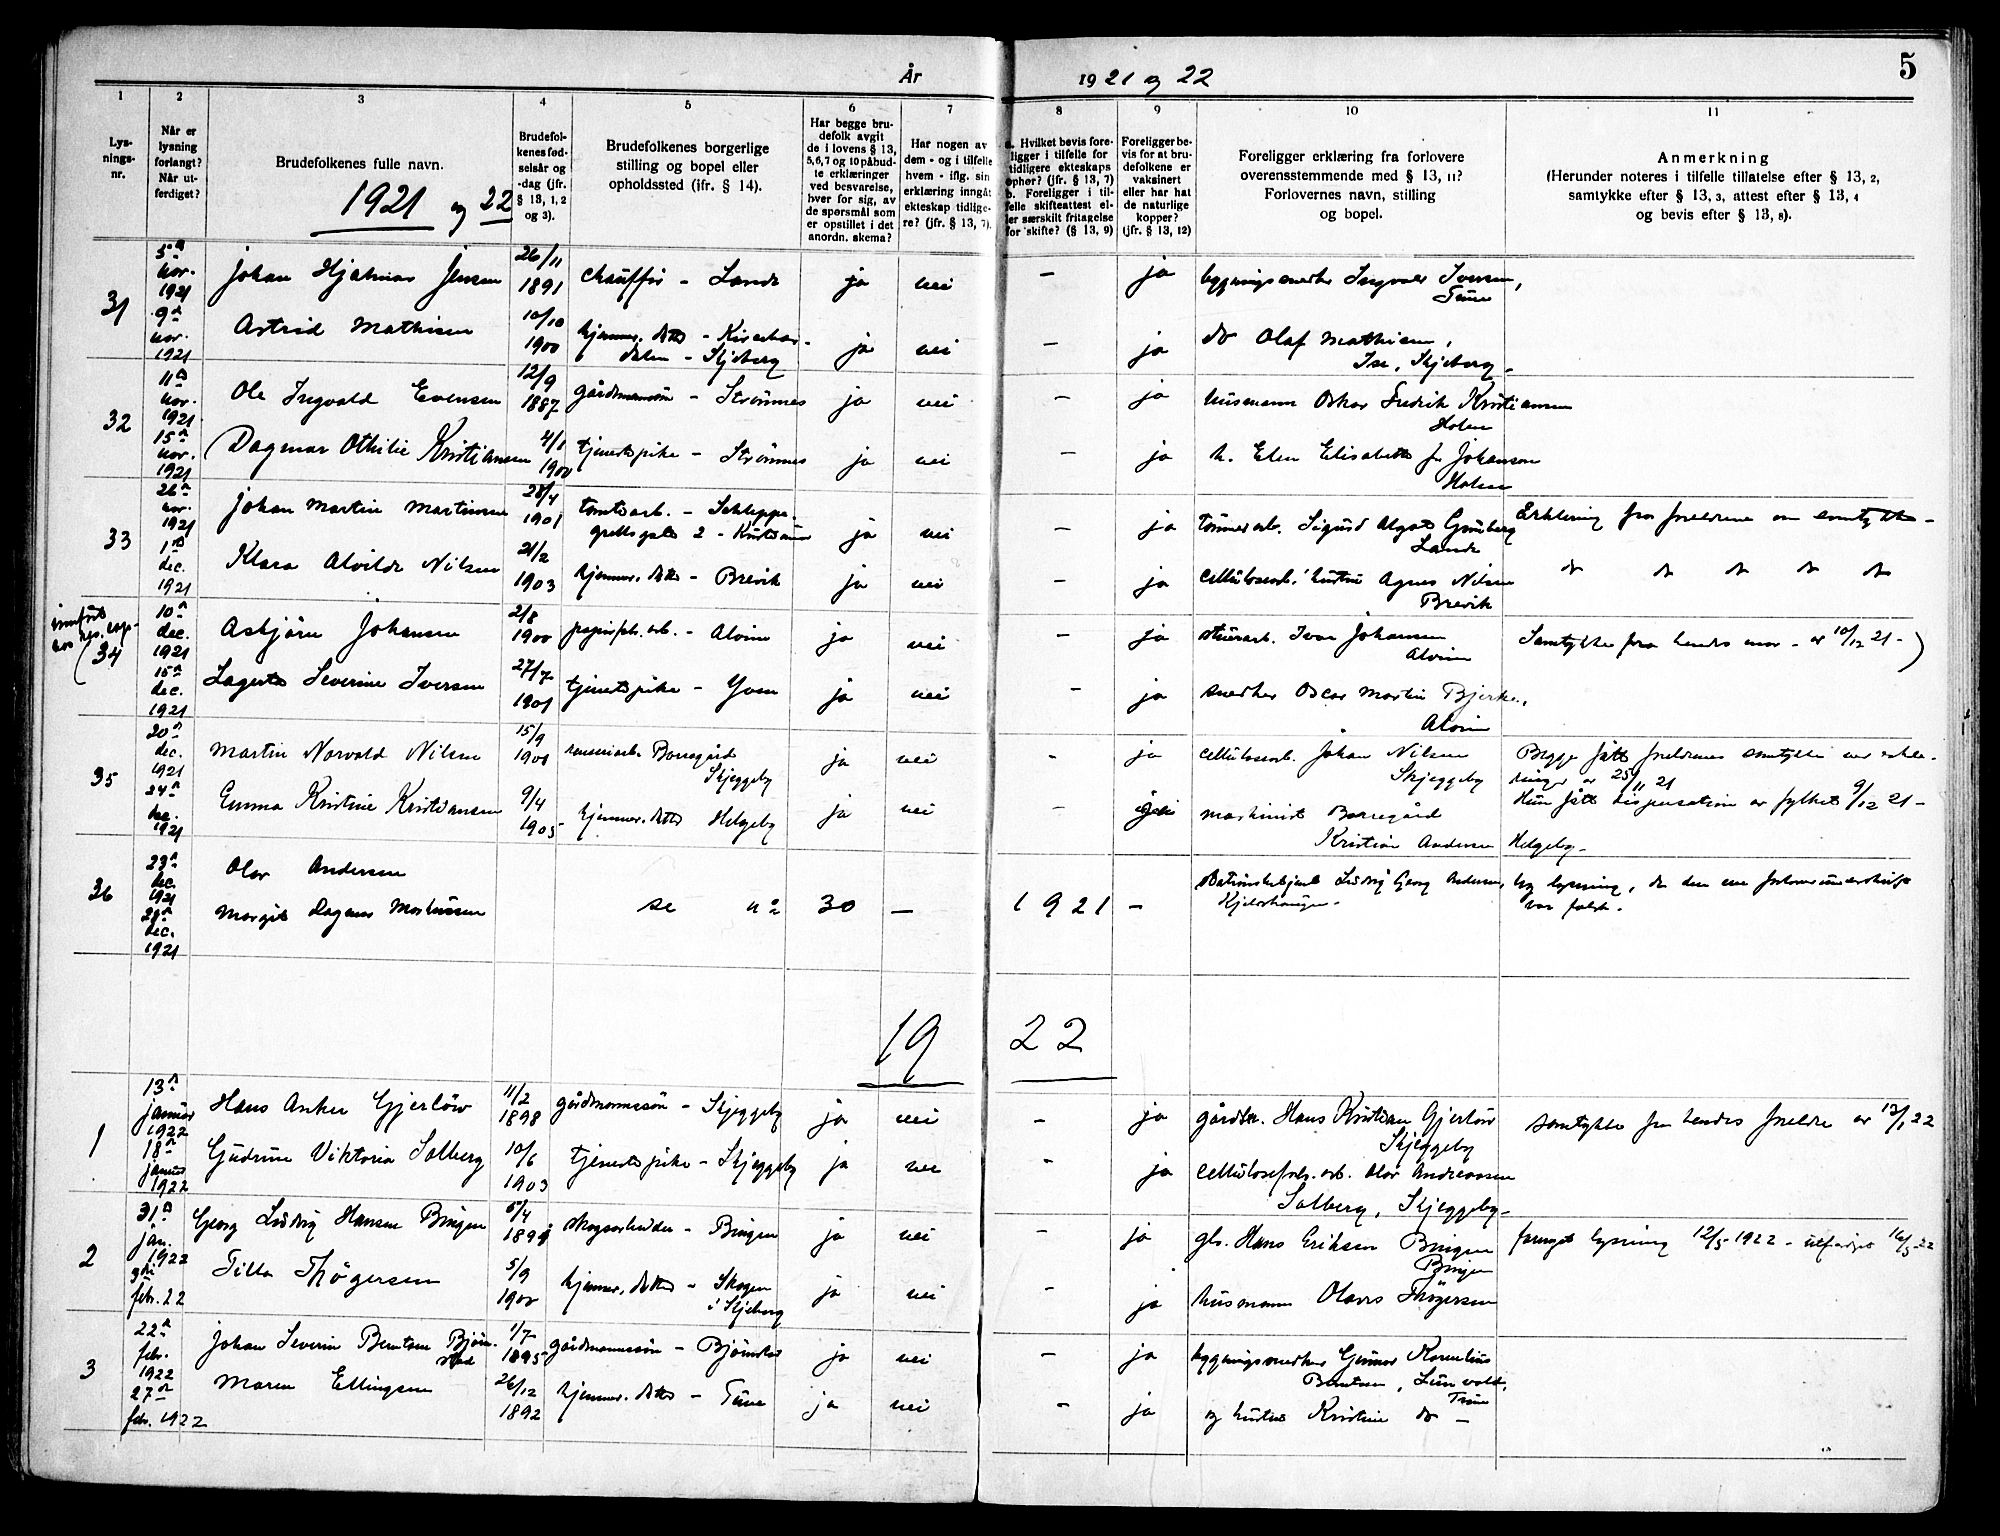 5
År 1921 og 22
1 2 3 4 5 6 7 8 9 10 11
Lys-
nings-
nr.
Når er
lysning
forlangt?
Når ut-
ferdiget?
Brudefolkenes fulle navn.
1921 og 22
Brudefol-
kenes fød-
selsår og
-dag (jfr.
§ 13, 1, 2
og 3).
Brudefolkenes borgerlige
stilling og bopel eller
opholdssted (jfr. § 14).
Har begge bru-
defolk avgit
de i lovens § 13,
5,6,7 og 10 påbud-
te erklæringer
ved besvarelse,
hver for sig, av
de spørsmål som
er opstillet i det
anordn. skema?
Har nogen av
dem - og i tilfelle
hvem - iflg. sin
erklæring inngåt
ekteskap tidlige-
re? (jfr. § 13, 7).
a. Hvilket bevis fore-
ligger i tilfelle for
tidligere ekteskaps
ophør? (jfr. § 13, 7)
b. Foreligger i til-
felle skifteattest el-
ler særskilt fritagelse
for skifte? (§ 13, 9)
Foreligger be-
vis for at bru-
defolkene er
vaksinert
eller har hat
de naturlige
kopper?
(jfr. § 13, 12)
Foreligger erklæring fra forlovere
overensstemmende med § 13, 11?
Forlovernes navn, stilling
og bopel.
Anmerkning
(Herunder noteres i tilfelle tillatelse efter § 13, 2,
samtykke efter § 13, 3, attest efter § 13, 4
og bevis efter § 13, 8).
31
5te nov. 1921
Johan Hjalmar Jensen
26/11 1891
chauffør - Lande
ja nei - ja
bygningssnedker Ingvald Iversen,
Tune
9de nov. 1921
Astrid Mathisen
10/10 1900
hjemmev. datter -
- Skjeberg
ja nei - ja
do Olaf Mathisen,
Ise, Skjeberg -
32
11te nov. 1921
Ole Ingvald Evensen
12/9 1887
gårdmannssøn - Strømnes
ja nei - ja
husmann Oskar Fredrik Kristiansen
Holen
15de nov. 1921
Dagmar Othilie Kristiansen
4/1 1900
tjenestepike - Strømnes
ja nei - ja
h. Elen Elisabeth Johansen
Holen
33
26de nov. 1921
Johan Martin Martinsen
28/4 1901
tomtearb. - Schleppe-
grellsgate 2 - Kristiania
ja nei - ja
tømmerarb. Sigurd Algot Grønberg
Lande
Erklæring fra foreldrene om samtykke -
1ste dec. 1921
Klara Alvilde Nilsen
21/2 1903
hjemmev. datter - Brevik
ja nei - ja
cellulosearb. hustru Agnes Nilsen
Brevik
do do do do do
34
10de dec. 1921
Asbjørn Johansen
2/8 1900
papirfab. arb. - Alvim
ja nei - ja
Ivar Johansen
Alvim
Samtykke fra hendes mor - av 10/12 21 -
15de dec. 1921
Lagerta Severine Iversen
27/7 1901
tjenestepike - Yven
ja nei - ja
snedker Oscar Martin Bjerke,
Alvim
35
20de dec. 1921
Martin Norvald Nilsen
15/9 1901
Borregård
Skjeggeby
ja nei - ja
cellulosearb. Johan Nilsen
Skjeggeby
Begge fått foreldrenes samtykke iflg. erklæ-
ringer av 25/11 21
24de dec. 1921
Emma Kristine Kristiansen
9/4 1905
hjemmev. datter Helgeby
ja nei - nei
maskinist Borregård
Kristian Andersen Helgeby -
Hun fått dispensation av fylket 9/12 21 -
36
29de dec. 1921
29de dec. 1921
Olav Andersen
Margit Dagmar Martinsen
se no 30 - 1921 -
Ludvig Georg Andersen,
Kjelvshaugen -
Ny lysning, da den ene forloverunderskrift
var falsk.
1922
1
13de januar 1922
Hans Anker Gjerløw
11/2 1898
gårdmannssøn - Skjeggeby
ja nei - ja
gårdbr. Hans Kristian Gjerløw
Skjeggeby
Samtykke fra hendes foreldre av 13/1 22
18de januar 1922
Gudrun Viktoria Solberg
10/6 1903
tjenestepike - Skjeggeby
ja nei - ja
cellulosefabr. arb. Olav Andreassen
Solberg, Skjeggeby -
2
31te jan. 1922
Georg Ludvig Hansen Bingen
5/4 1899
skogsarbeider - Bingen
ja nei - ja
gbr. Hans Eriksen Bingen
Bingen
fornyet lysning 12/5 1922 - utferdiget 16/5 22
3die febr. 22
Tilla Thøgersen
5/9 1900
hjemmev. datter - Skogen
i Skjeberg
ja nei - ja
husmann Olaves Thøgersen
3
22de febr. 1922
Johan Severin Berntsen Bjørn-
stad
1/7 1895
gårdmannssøn - Bjørnstad
ja nei - ja
bygningssnedker Gunnar Kornelius
Berntsen, Lunvold,
Tune
27de febr. 1922
Maren Ellingsen
26/12 1892
hjemmev. datter - Tune
ja nei - ja
og hustru Kristine do -